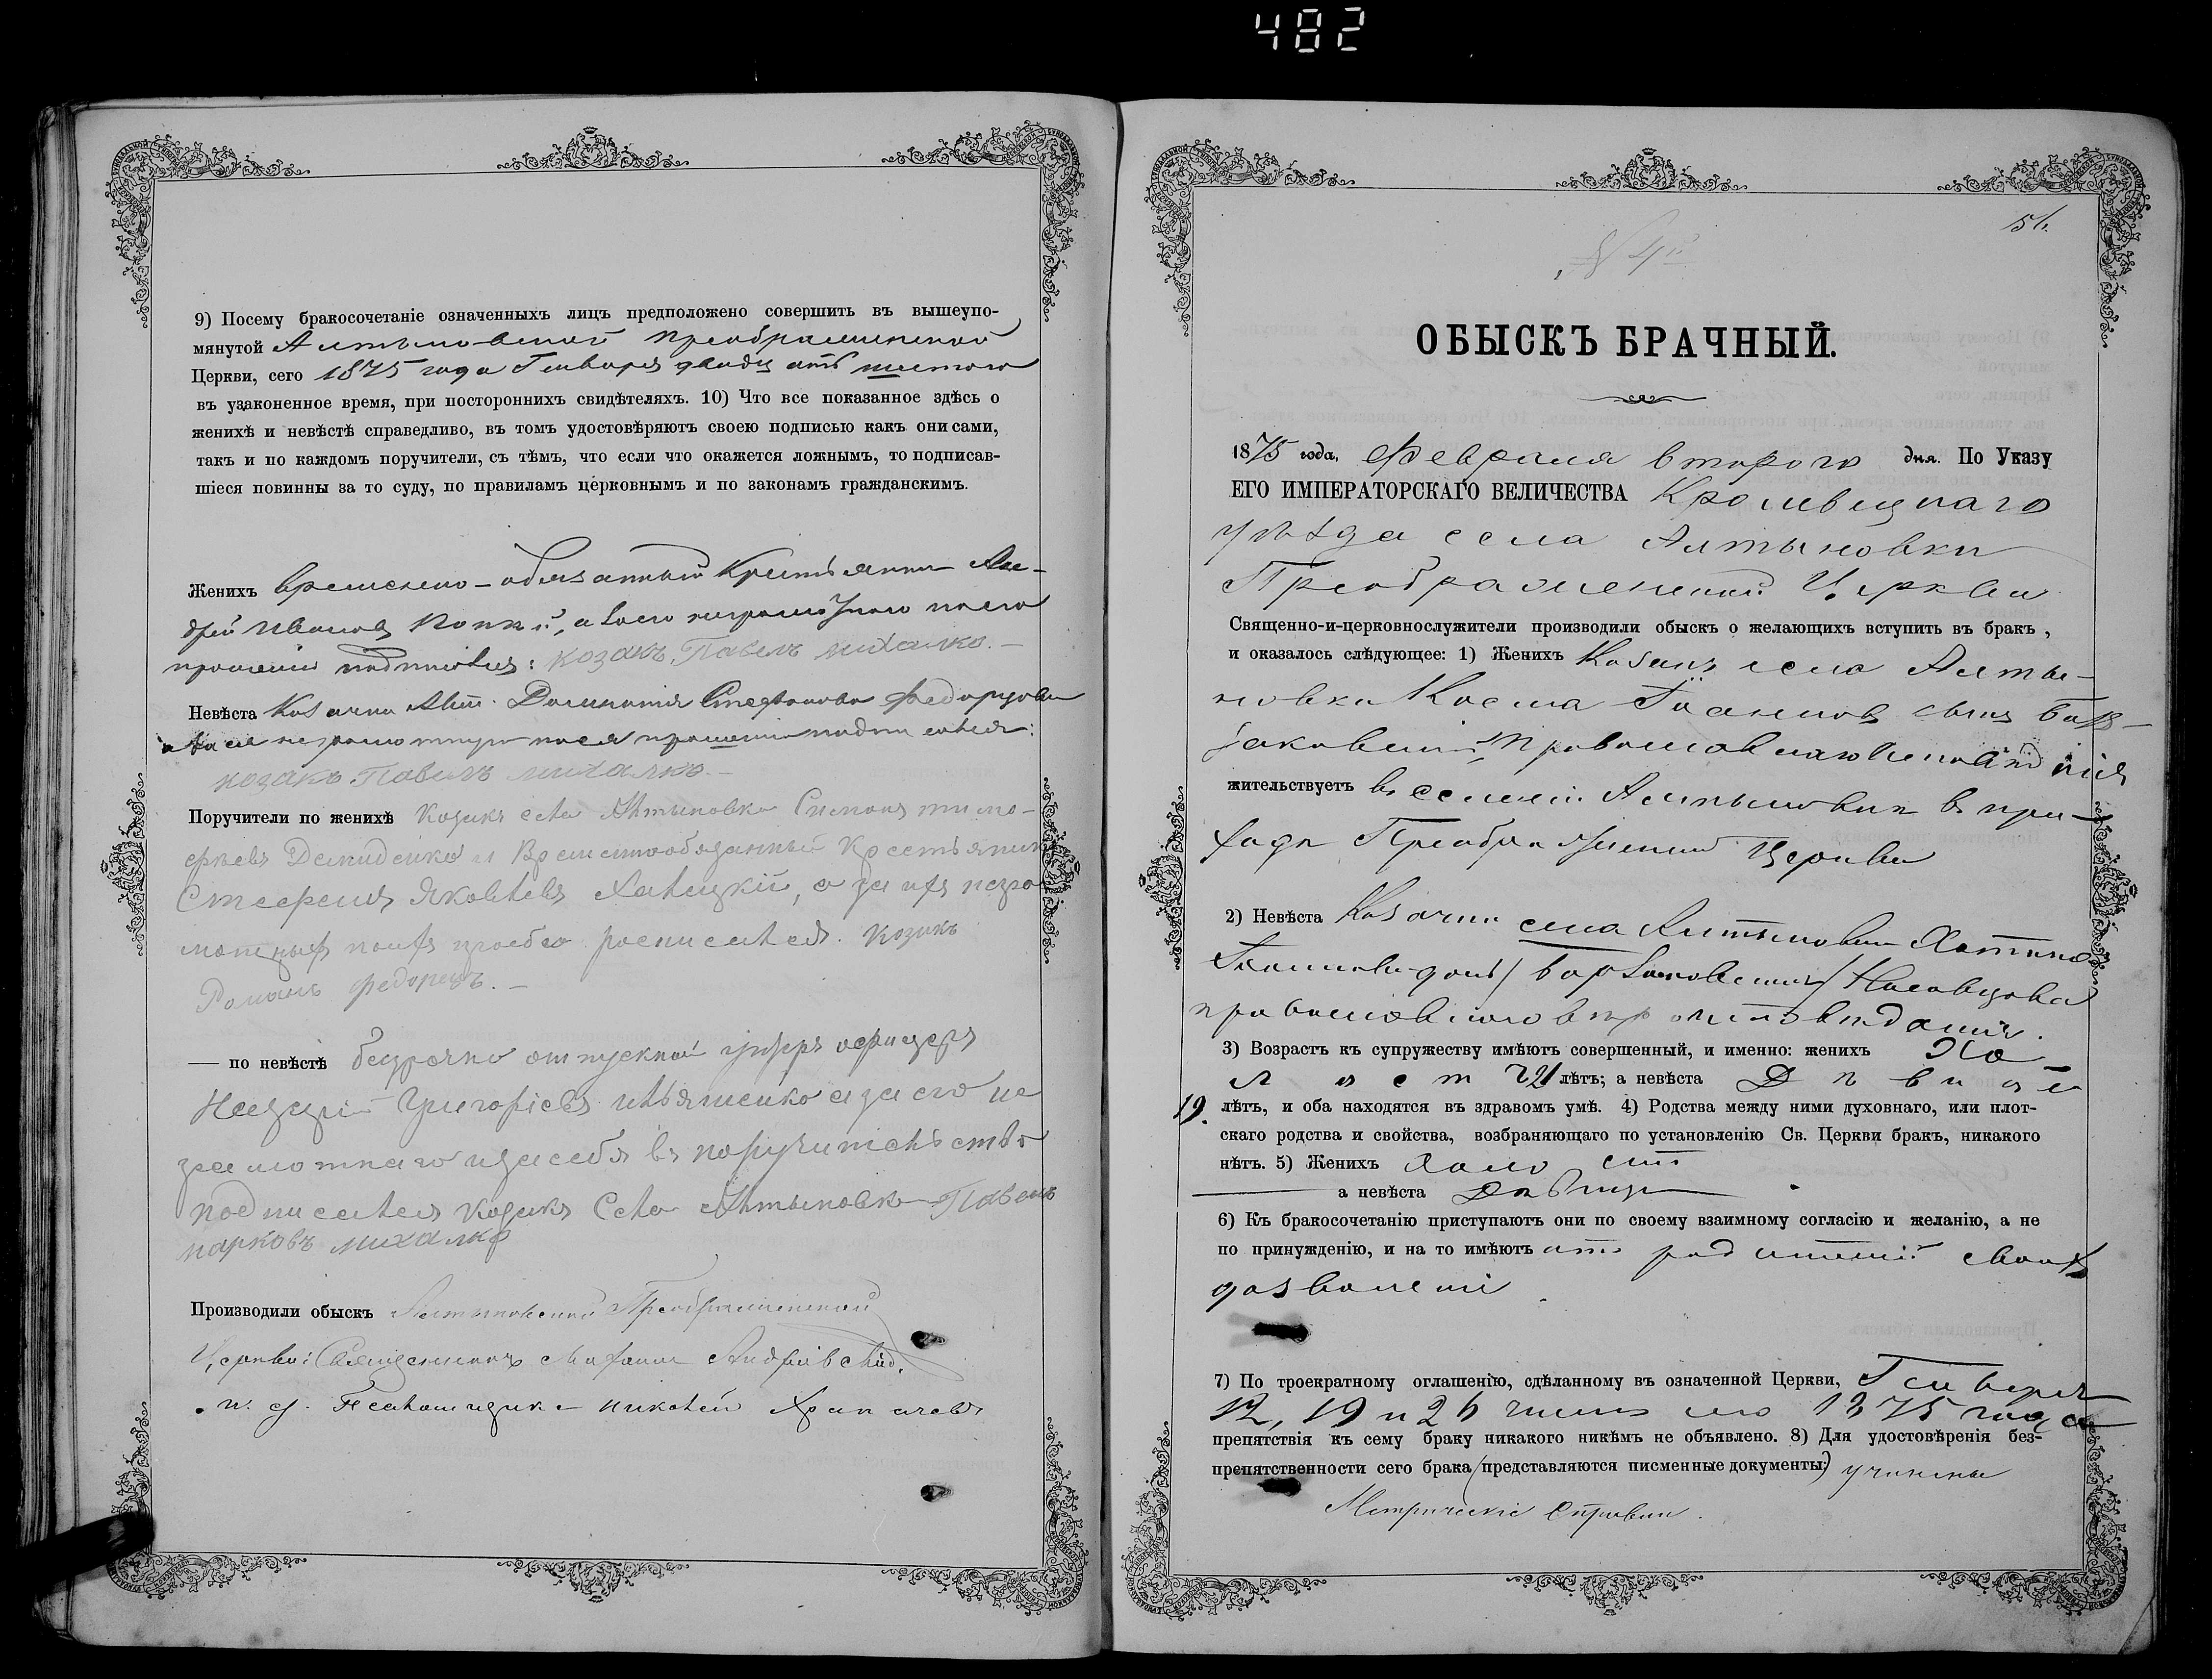 482
9) Посему бракосочетаніе означенныхъ лицъ предположено совершить въ вышеупо-
мянутой Алтыновской Преображенской
Церкви, сего 1875 года Генваря двадцать шестого
въ узаконенное время, при постороннихъ свидѣтеляхъ. 10) Что все показанное здѣсь о
женихѣ и невѣстѣ справедливо, въ томъ удостовѣряютъ своею подписью какъ они сами,
такъ и по каждомъ поручители, съ тѣмъ, что если что окажется ложнымъ, то подписав-
шіеся повинны за то суду, по правиламъ церковнымъ и по законамъ гражданскимъ.
Женихъ временно-обязанный Крестьянинъ Ан-
дрей Ивановъ, а вместо неграмотного по его
прошенію подписался: козакъ Павелъ михалко.-
Невѣста Козачка Алт. Стефанова Федорцова
а за ея неграмотную по ея прошенію подписался:
козакъ Павелъ михалко.-
Поручители по женихѣ Козакъ села Алтыновки Симонъ тимо-
феевъ Демиденко и Временнообязанный Крестьянинъ
Стефанъ Яковлевъ Ханецкій, а за ихъ негра
мотныхъ поихъ прозбѣ росписался. Козакъ
Романъ федорецъ.-
— по невѣстѣ безрочно отпускной унтеръ офицеръ
Григоріевъ Ильяшенко а за его не
грамотнаго и за себя въ поручительство
подписался козакъ Села Алтыновки Павелъ
марковъ михалко
Производили обыскъ Алтыновской Преображенской
Церкви: Священникъ Андріевскій.
и. д. Псаломщика николай
51.
№ 4й
ОБЫСКЪ БРАЧНЫЙ.
1875 года, Февраля второго дня. По Указу
ЕГО ИМПЕРАТОРСКАГО ВЕЛИЧЕСТВА Кролевецкаго
уѣзда села Алтыновки
Преображенской Церкви
Священно-и-церковнослужители производили обыскъ о желающихъ вступить въ бракъ,
и оказалось слѣдующее: 1) Женихъ Козакъ села Алты-
новки Косма Іоанновъ сынъ Бар-
заковскій, Православнаго исповѣданія
жительствуетъ въ селеніи Алтыновкѣ въ при-
ходѣ Преображенской Церкви
2) Невѣста Козачка села Алтыновки
Іоаннова дочь / Барзаковская / Носовцова
православнаго вѣроисповѣданія.
3) Возрастъ къ супружеству имѣютъ совершенный, и именно: женихъ Хо
лост 21 лѣтъ; а невѣста Дѣвица
19. лѣтъ, и оба находятся въ здравомъ умѣ. 4) Родства между ними духовнаго, или плот-
скаго родства и свойства, возбраняющаго по установленію Св. Церкви бракъ, никакого
нѣтъ. 5) Женихъ Холостъ
а невѣста Дѣвица
6) Къ бракосочетанію приступаютъ они по своему взаимному согласію и желанію, а не
по принужденію, и на то имѣютъ отъ родителей своихъ
дозволеніе
7) По троекратному оглашенію, сдѣланному въ означенной Церкви, Генваря
12, 19 и 26 чиселъ сего 1875 года
препятствія къ сему браку никакого никѣмъ не объявлено. 8) Для удостовѣренія без-
препятственности сего брака (представляются писменные документы:) учинены
Метрическіе Справки.